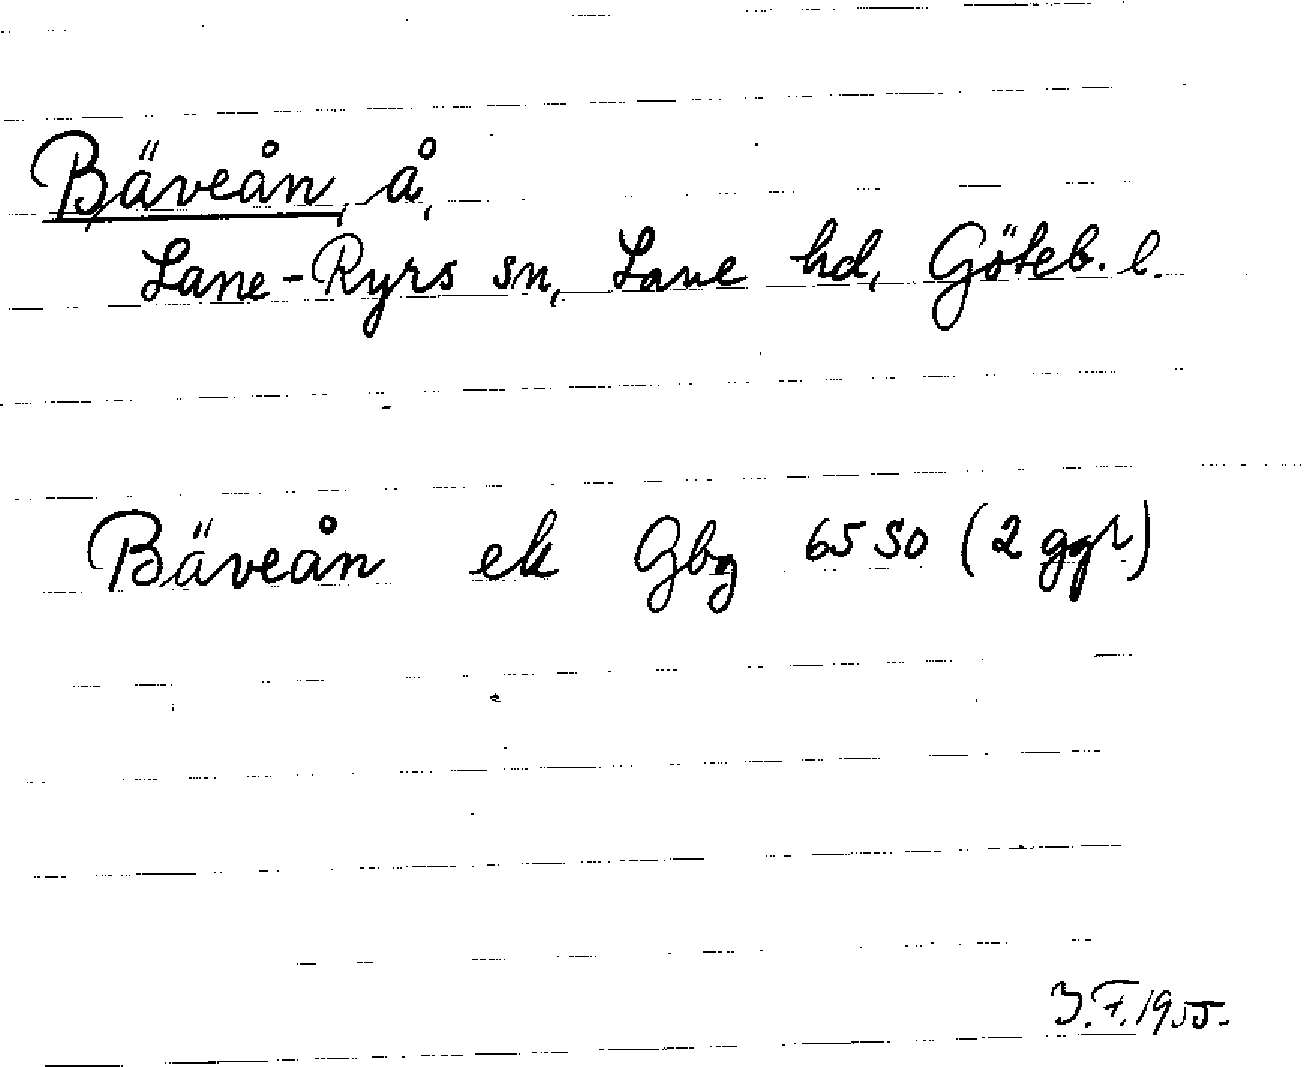 Bäveån, å,
Lane-Ryrs sn, Lane hd, Göteb. l.
Bäveån ek Gbg 65 SO (2 ggr)
3.F.1955.